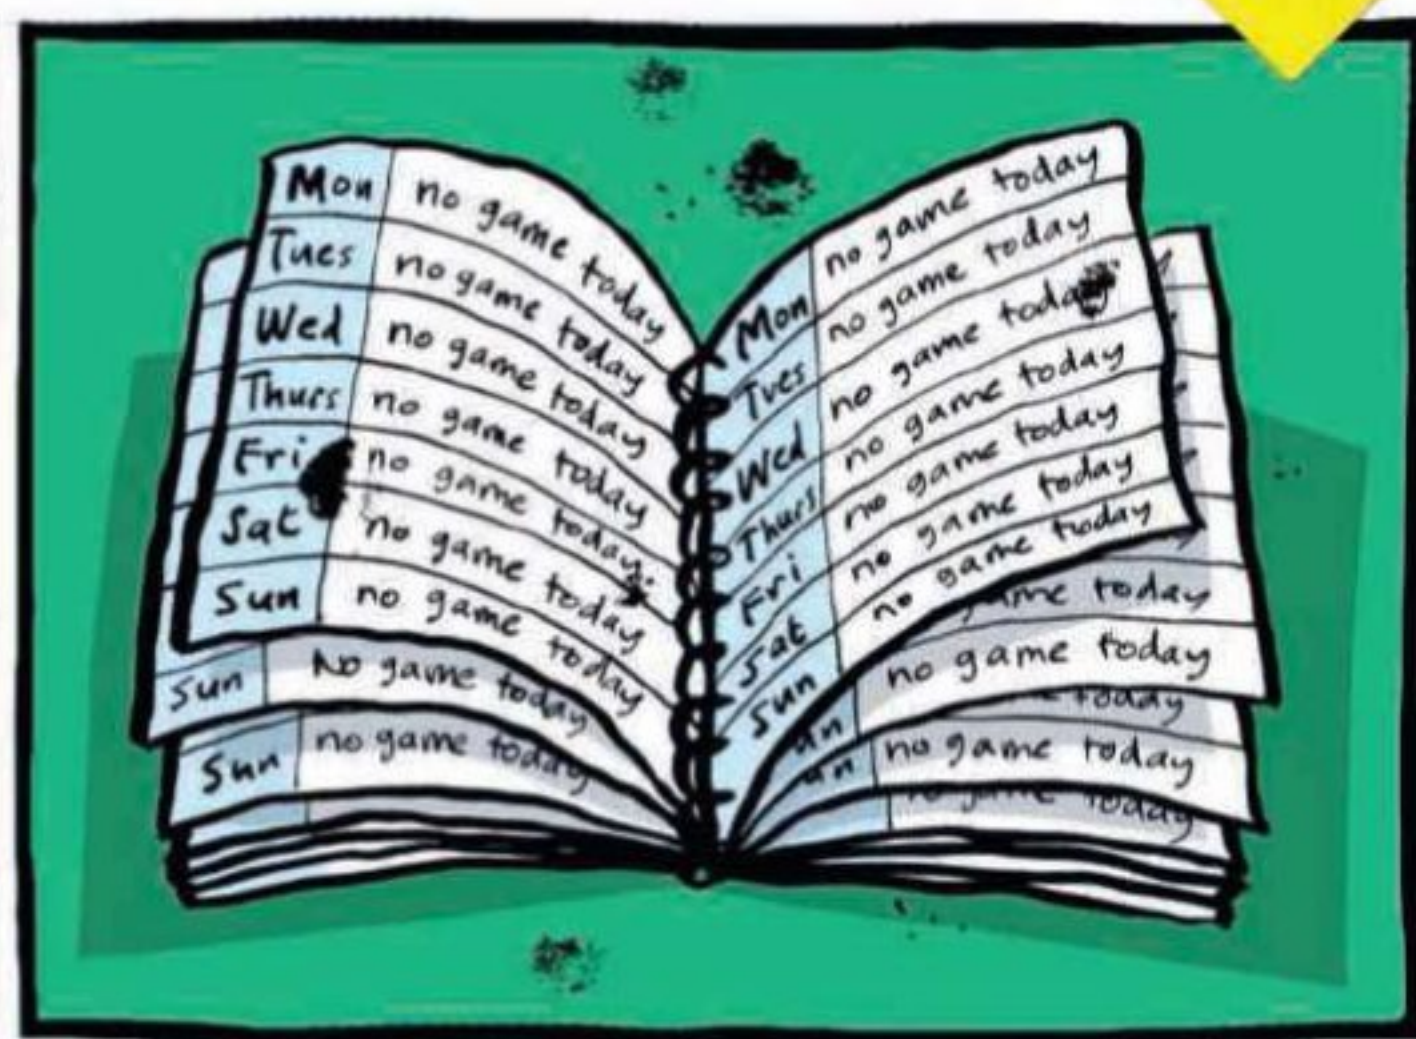 Mon no game today
Tues no game today
Wed no game today
Thurs no game today
Fri no game today
Sat no game today
Sun no game today
Sun No game today
Sun no game today
Mon no game today
Tues no game today
Wed no game today
Thurs no game today
Fri no game today
Sat no game today
Sun no game today
game today
no game today
today
no game today
no game today